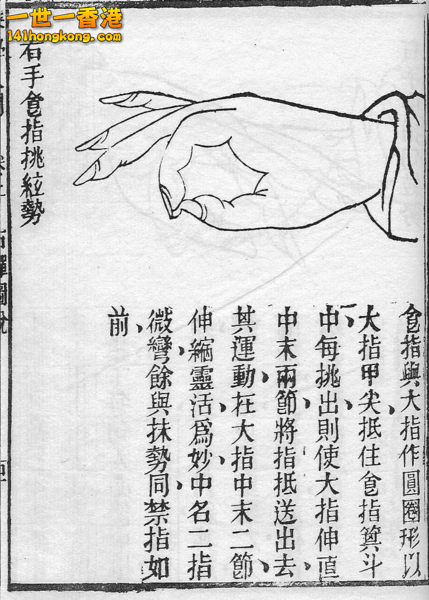 一世一香港
141hongkong.com
右手食指挑絃勢
食指與大指作圓圈形以
大指甲尖抵住食指箕斗
中每挑出則使大指伸直
中末兩節將指抵送出去
其運動在大指中末二節
伸縮靈活爲妙中名二指
微彎餘與抹勢同禁指如
前
彈圖說